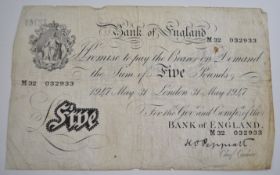 Bank of England
M32 032933
I Promise to pay the Bearer on Demand
the Sum of Five Pounds
1947 May 31 London 31 May 1947
For the Govr and Compa of the
BANK of ENGLAND,
M32 032933
Five
K O Peppiatt
Chief Cashier